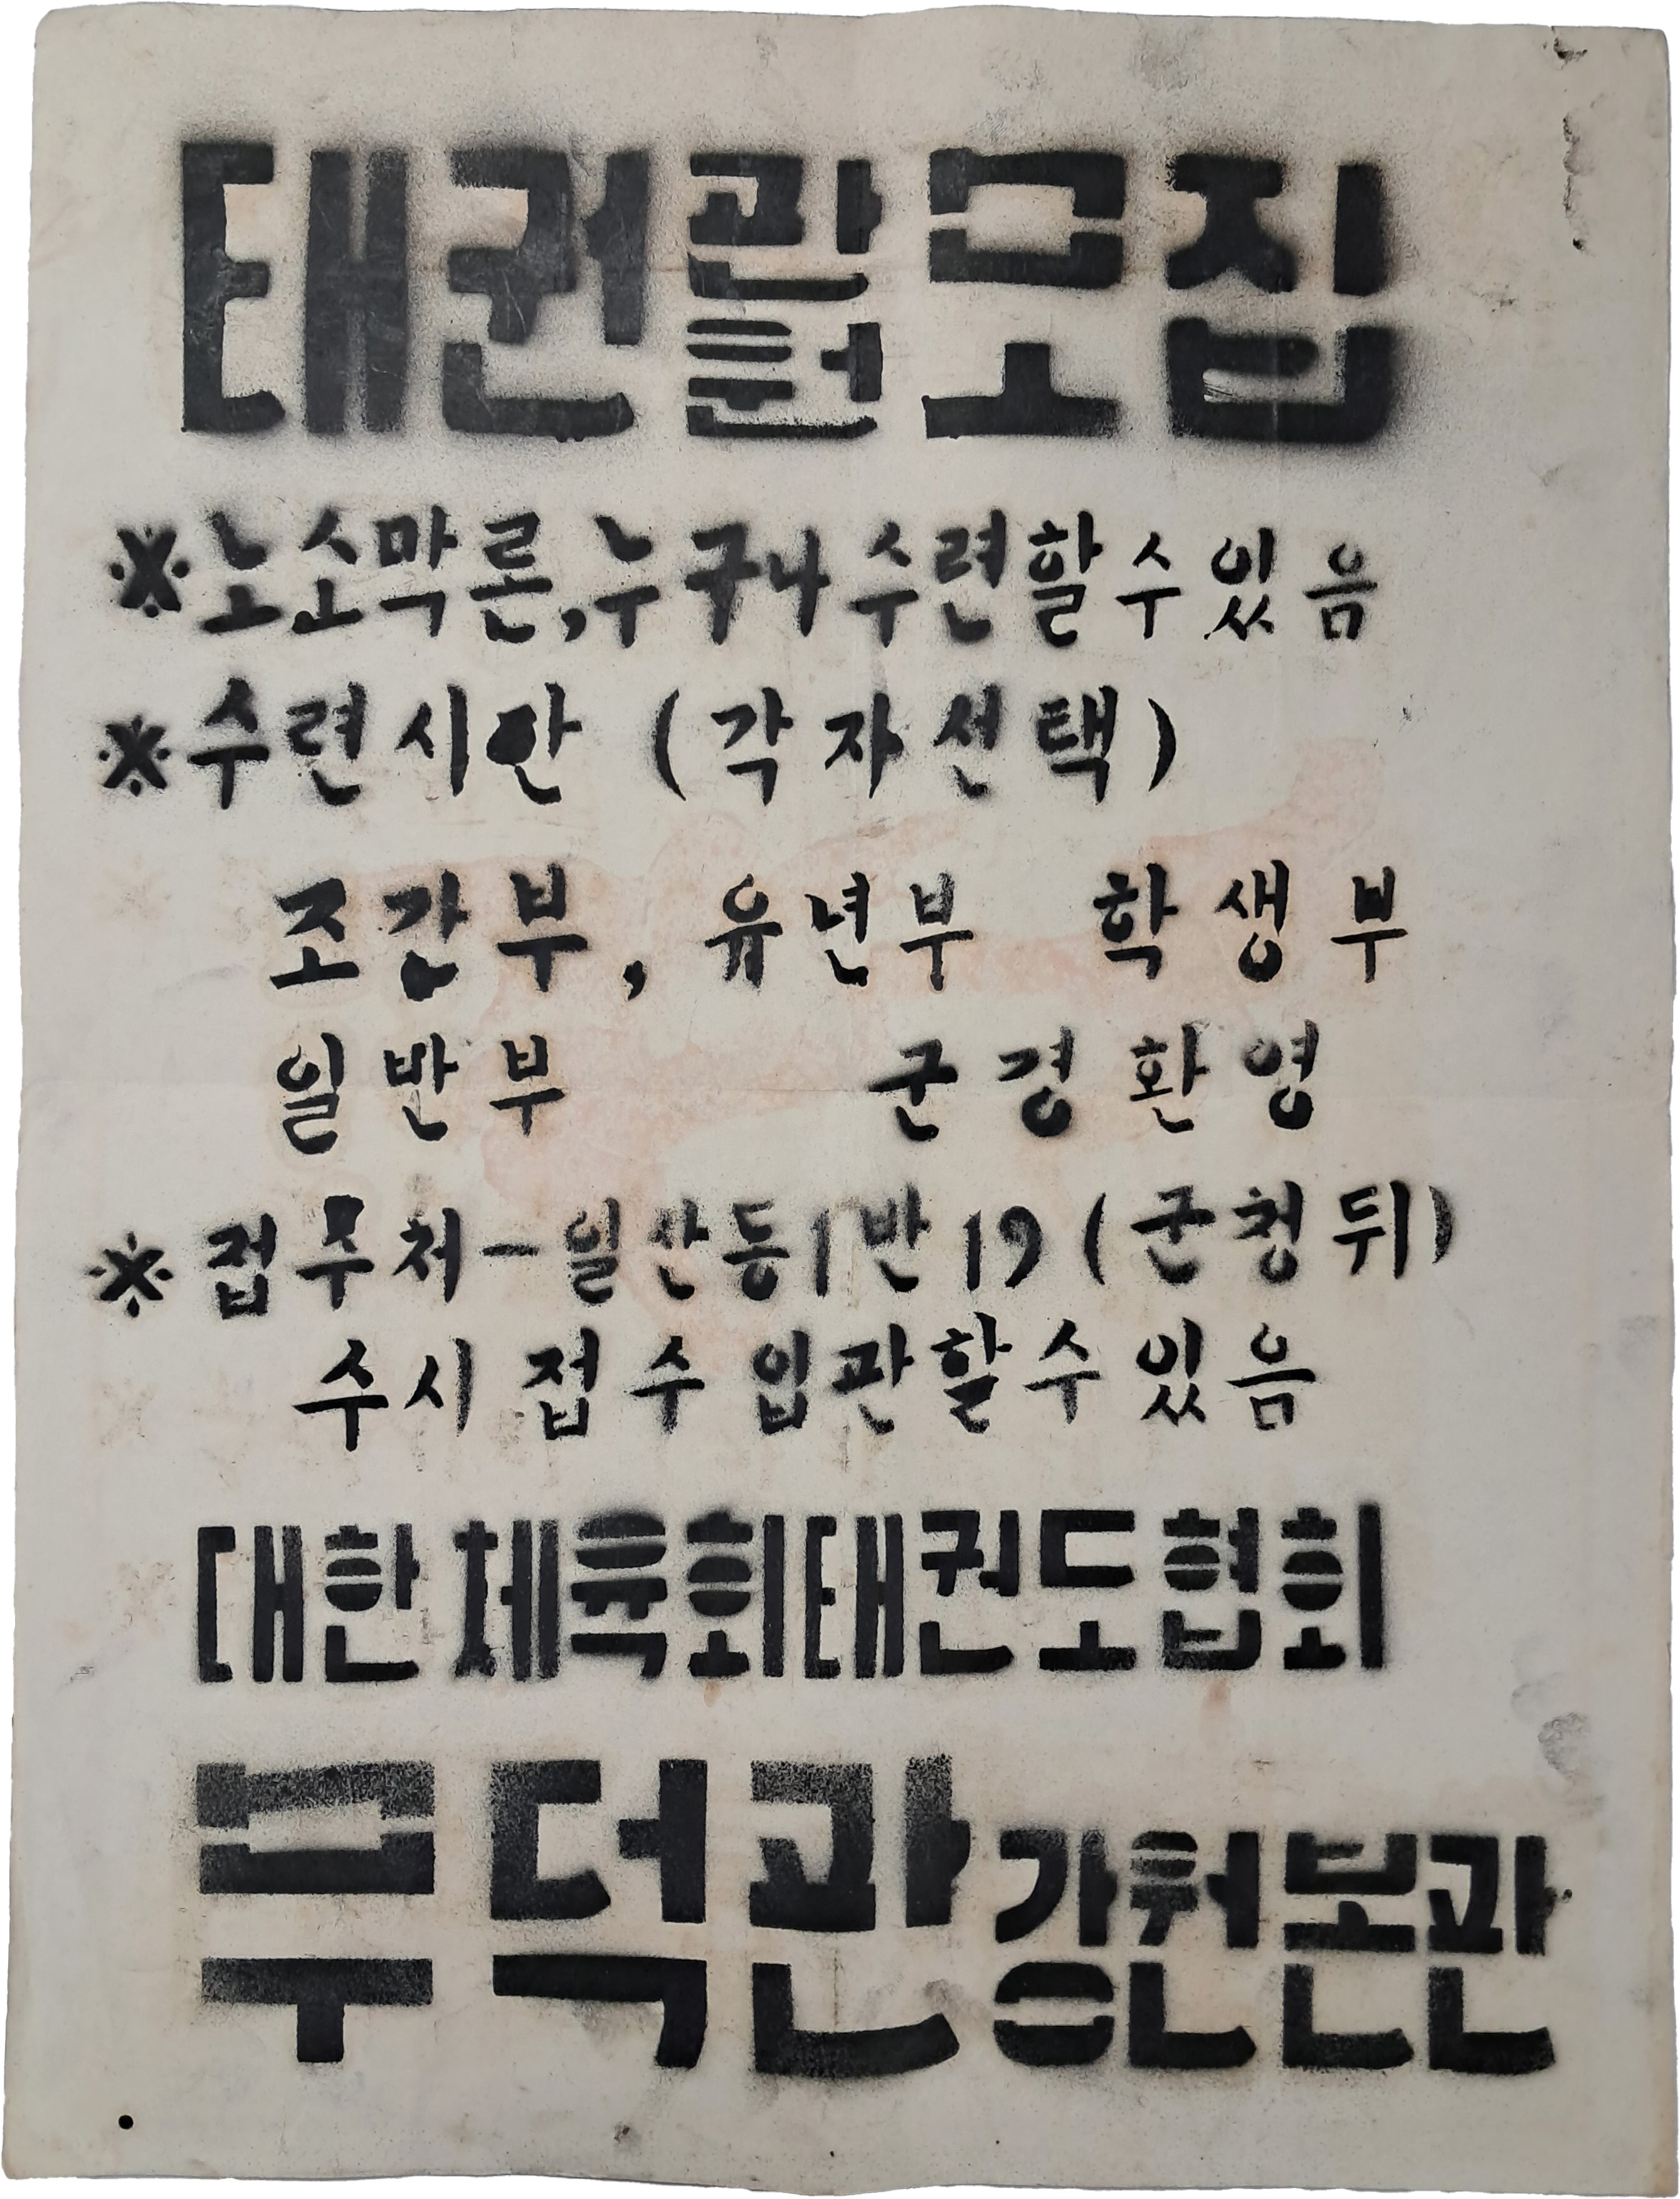 태권관원모집
※노소막론,누구나수련할수있음
※수련시간 (각자선택)
조간부, 유년부 학생부
일반부 군경환영
※접수처-일산동1반19(군청뒤)
수시접수입관할수있음
대한체육회태권도협회
무덕관강원본관